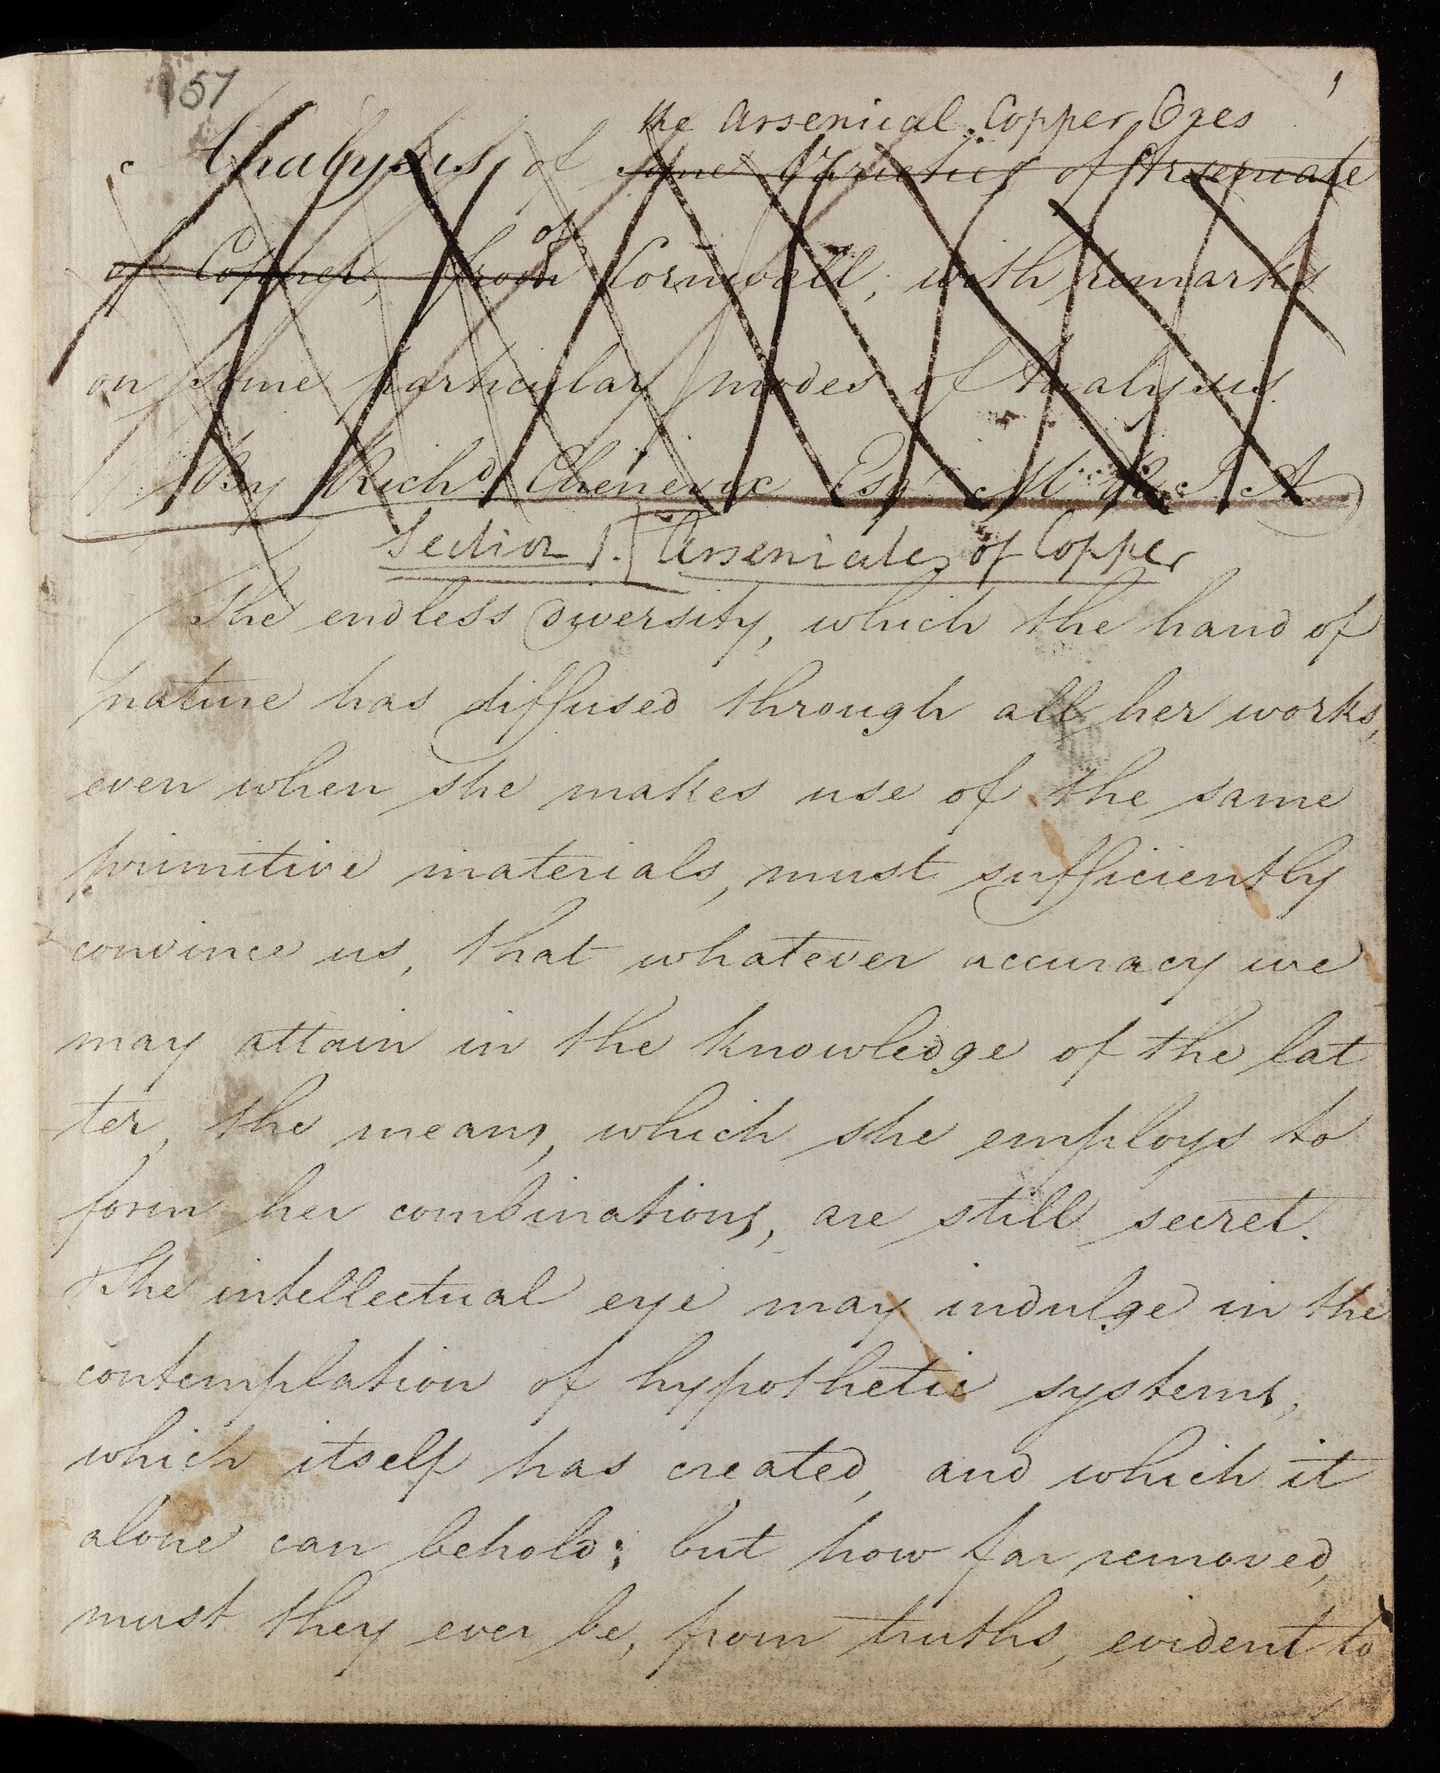 157
1
the Arsenical Copper Ores
Analysis of some Varieties of Arseniate
of
of Copper, from Cornwall; with remarks
on some particular modes of Analysis.
By Richd Chenevix Esqr M. R. I. A
Section 1. [Arseniates of Copper
The endless diversity, which the hand of
nature has diffused through all her works,
even when she makes use of the same
primitive materials, must sufficiently
convince us, that whatever accuracy we
may attain in the knowledge of the lat
ter, the means, which she employs to
form her combinations, are still secret.
The intellectual eye may indulge in the
contemplation of hypothetic systems,
which itself has created, and which it
alone can behold; but how far removed,
must they ever be, from truths, evident to